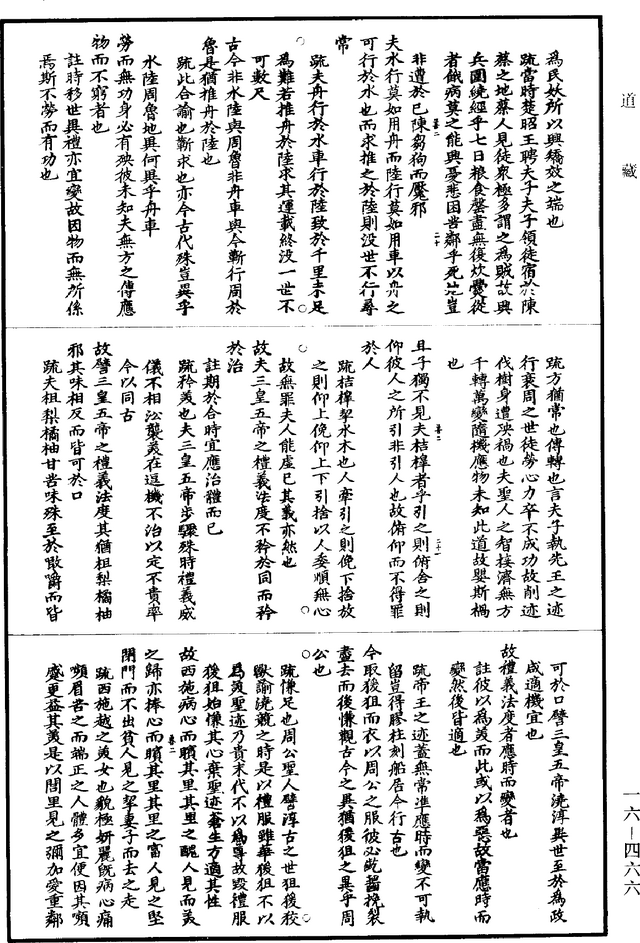 道藏
為民妖所以興矯效之端也
疏當時楚昭王聘夫子夫子領徒宿於陳
蔡之地蔡人見徒衆極多謂之為賊故興
兵圍繞經乎七日粮食罄盡無復炊爨從
者餓病莫之能興憂悲困苦鄰乎死地豈
非遭於已陳芻狗而魘邪
夫水行莫如用舟而陸行莫如用車以舟之
可行於水也而求推之於陸則没世不行尋
常
疏夫舟行於水車行於陸致於千里未足
為難若推舟於陸求其運載終没一世不
可數尺
古今非水陸與周魯非舟車與今蘄行周於
魯是猶推舟於陸也
疏此合諭也蘄求也亦今古代殊豈異乎
水陸周魯地異何異乎舟車
勞而無功身必有殃彼未知夫無方之傳應
物而不窮者也
註時移世異禮亦宜變故因物而無所係
焉斯不勞而有功也
疏方猶常也傳轉也言夫子執先王之迹
行衰周之世徒勞心力卒不成功故削迹
伐樹身遭殃禍也夫聖人之智接濟無方
千轉萬變隨機應物未知此道故嬰斯禍
也
且子獨不見夫桔槹者乎引之則俯舍之則
仰彼人之所引非引人也故俯仰而不得罪
於人
疏桔槹挈水木也人牽引之則俛下捨放
之則仰上俛仰上下引捨以人委順無心
故無罪夫人能虛己其義亦然也
故夫三皇五帝之禮義法度不矜於同而矜
於治
註期於合時宜應治體而已
疏矜美也夫三皇五帝步驟殊時禮義威
儀不相沿襲美在逗機不治以定不貴率
今以同古
故譬三皇五帝之禮義法度其猶柤梨橘柚
邪其味相反而皆可於口
疏夫柤梨橘柚甘苦味殊至於噉嚼而皆
可於口譬三皇五帝澆淳異世至於為政
咸適機宜也
故禮義法度者應時而變者也
註彼以為美而此或以為惡故當應時而
變然後皆適也
疏帝王之迹蓋無常準應時而變不可執
留豈得膠柱刻船居今行古也
今取猨狙而衣以周公之服彼必齕齧挽裂
盡去而後慊觀古今之異猶猨狙之異乎周
公也
疏慊足也周公聖人譬淳古之世狙猨狡
獸諭澆競之時是以禮服雖華猨狙不以
為美聖迹乃貴末代不以為尊故毀禮服
猨狙始慊其心棄聖迹蒼生方適其性
故西施病心而矉其里其里之醜人見而美
之歸亦捧心而矉其里其里之富人見之堅
閉門而不出貧人見之挈妻子而去之走
疏西施越之美女也貌極妍麗既病心痛
嚬眉苦之而端正之人體多宜便因其嚬
蹙更益其美是以閭里見之彌加愛重鄰
一六—四六六